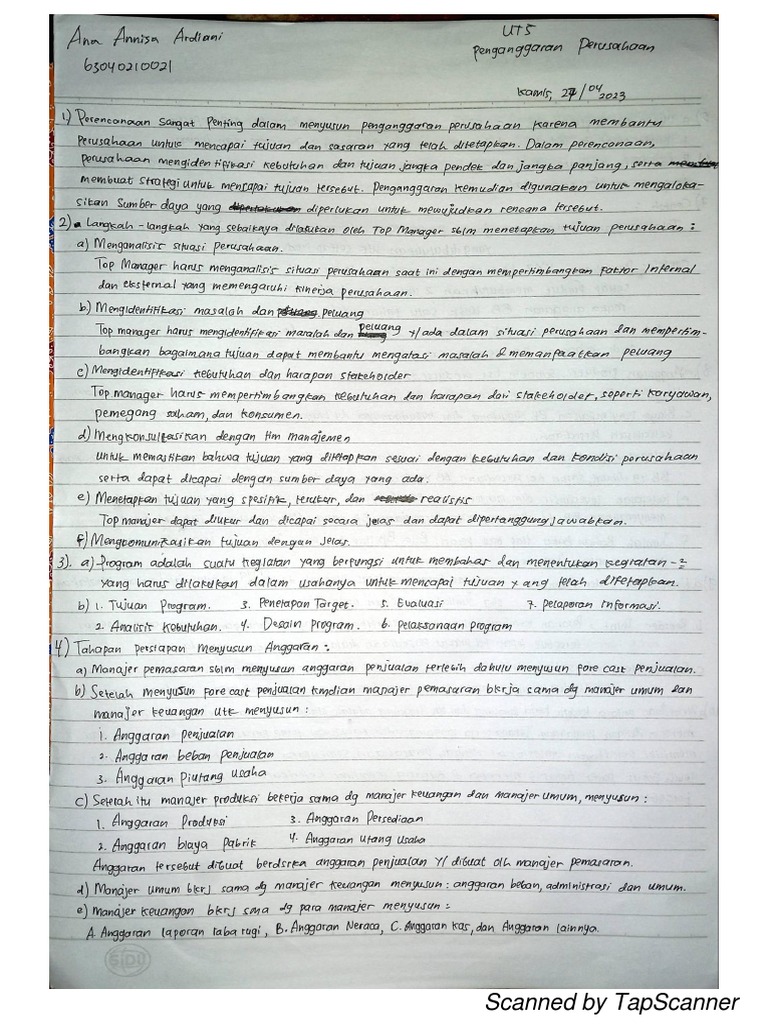 Ana Annisa Ardiani
63040210021
UTS
Penganggaran Perusahaan
Kamis, 27/04 2023
1) Perencanaan Sangat Penting dalam menyusun penganggaran perusahaan karena membantu
Perusahaan untuk mencapai tujuan dan sasaran yang telah ditetapkan. Dalam perencanaan,
perusahaan mengidentifikasi kebutuhan dan tujuan jangka pendek dan jangka panjang, serta
membuat strategi untuk mencapai tujuan tersebut. Penganggaran kemudian digunakan untuk mengaloka-
sikan sumber daya yang diperlukan untuk mewujudkan rencana tersebut.
2) Langkah-langkah yang sebaiknya dilakukan oleh Top Manager sblm menetapkan tujuan perusahaan :
a) Menganalisis situasi perusahaan.
Top Manager harus menganalisis situasi perusahaan saat ini dengan mempertimbangkan faktor internal
dan eksternal yang memengaruhi kinerja perusahaan.
b) Mengidentifikasi masalah dan peluang
Top manager harus mengidentifikasi masalah dan peluang y/ ada dalam situasi perusahaan dan mempertim-
bangkan bagaimana tujuan dapat membantu mengatasi masalah & memanfaatkan peluang
c) Mengidentifikasi kebutuhan dan harapan stakeholder
Top manager harus mempertimbangkan kebutuhan dan harapan dari stakeholder, seperti karyawan,
pemegang saham, dan konsumen.
d) Mengkonsultasikan dengan tim manajemen
untuk memastikan bahwa tujuan yang ditetapkan sesuai dengan kebutuhan dan kondisi perusahaan
serta dapat dicapai dengan sumber daya yang ada.
e) Menetapkan tujuan yang spesifik, terukur, dan realistis
Top manajer dapat diukur dan dicapai secara jelas dan dapat dipertanggungjawabkan.
f) Mengkomunikasikan tujuan dengan jelas.
3). a) Program adalah suatu kegiatan yang berfungsi untuk membahas dan menentukan kegiatan-2
yang harus dilakukan dalam usahanya untuk mencapai tujuan yang telah ditetapkan.
b) 1. Tujuan Program. 3. Penetapan Target. 5. Evaluasi 7. pelaporan informasi.
2. Analisis Kebutuhan. 4. Desain program. 6. pelaksanaan program
4) Tahapan persiapan Menyusun Anggaran :
a) Manajer pemasaran sblm menyusun anggaran penjualan terlebih dahulu menyusun fore cast penjualan.
b) Setelah menyusun fore cast penjualan kmdian manajer pemasaran bkrja sama dg manajer umum dan
manajer keuangan utk menyusun :
1. Anggaran penjualan
2. Anggaran beban penjualan
3. Anggaran Piutang usaha
c) Setelah itu manajer produksi bekerja sama dg manajer keuangan dan manajer umum, menyusun :
1. Anggaran Produksi 3. Anggaran Persediaan
2. Anggaran biaya Pabrik 4. Anggaran utang usaha
Anggaran tersebut dibuat berdsrka anggaran penjualan y/ dibuat olh manajer pemasaran.
d) Manajer umum bkrj sama dg manajer keuangan menyusun : anggaran beban, administrasi dan umum.
e) manajer keuangan bkrj sma dg para manajer menyusun :
A. Anggaran laporan laba rugi, B. Anggaran Neraca, C. Anggaran kas, dan Anggaran lainnya.
SIDU
Scanned by TapScanner